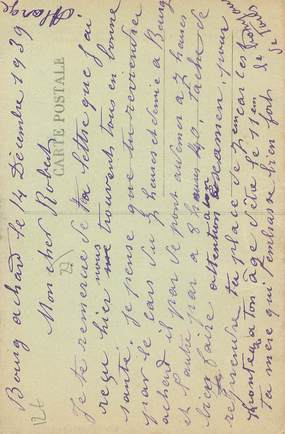 Bourg achard le 14 Décembre 1939
Mon cher Robert
Je te remercie de ta lettre que j'ai
reçue hier nous trouvant tous en bonne
santé. Je pense que tu reviendras
par le cars du 7 heures et demie a Bourg
achard il par de pont audemer a 7 heures
et l'autre par a 8 heures 40, tache de
bien faire attention a ton examen, pour
reprendre ta place de 2em car les
a ton age d'être le 11em
Ta mère qui t'embrasse bien fort
CARTE POSTALE
126